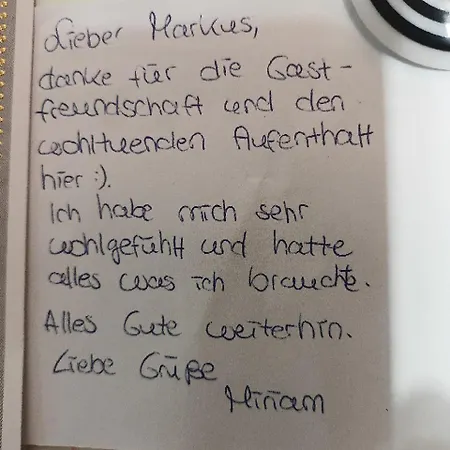 Lieber Markus,
danke für die Gast-
freundschaft und den
wohltuenden Aufenthalt
hier :).
Ich habe mich sehr
wohlgefühlt und hatte
alles was ich brauchte.
Alles Gute weiterhin.
Liebe Grüße
Miriam